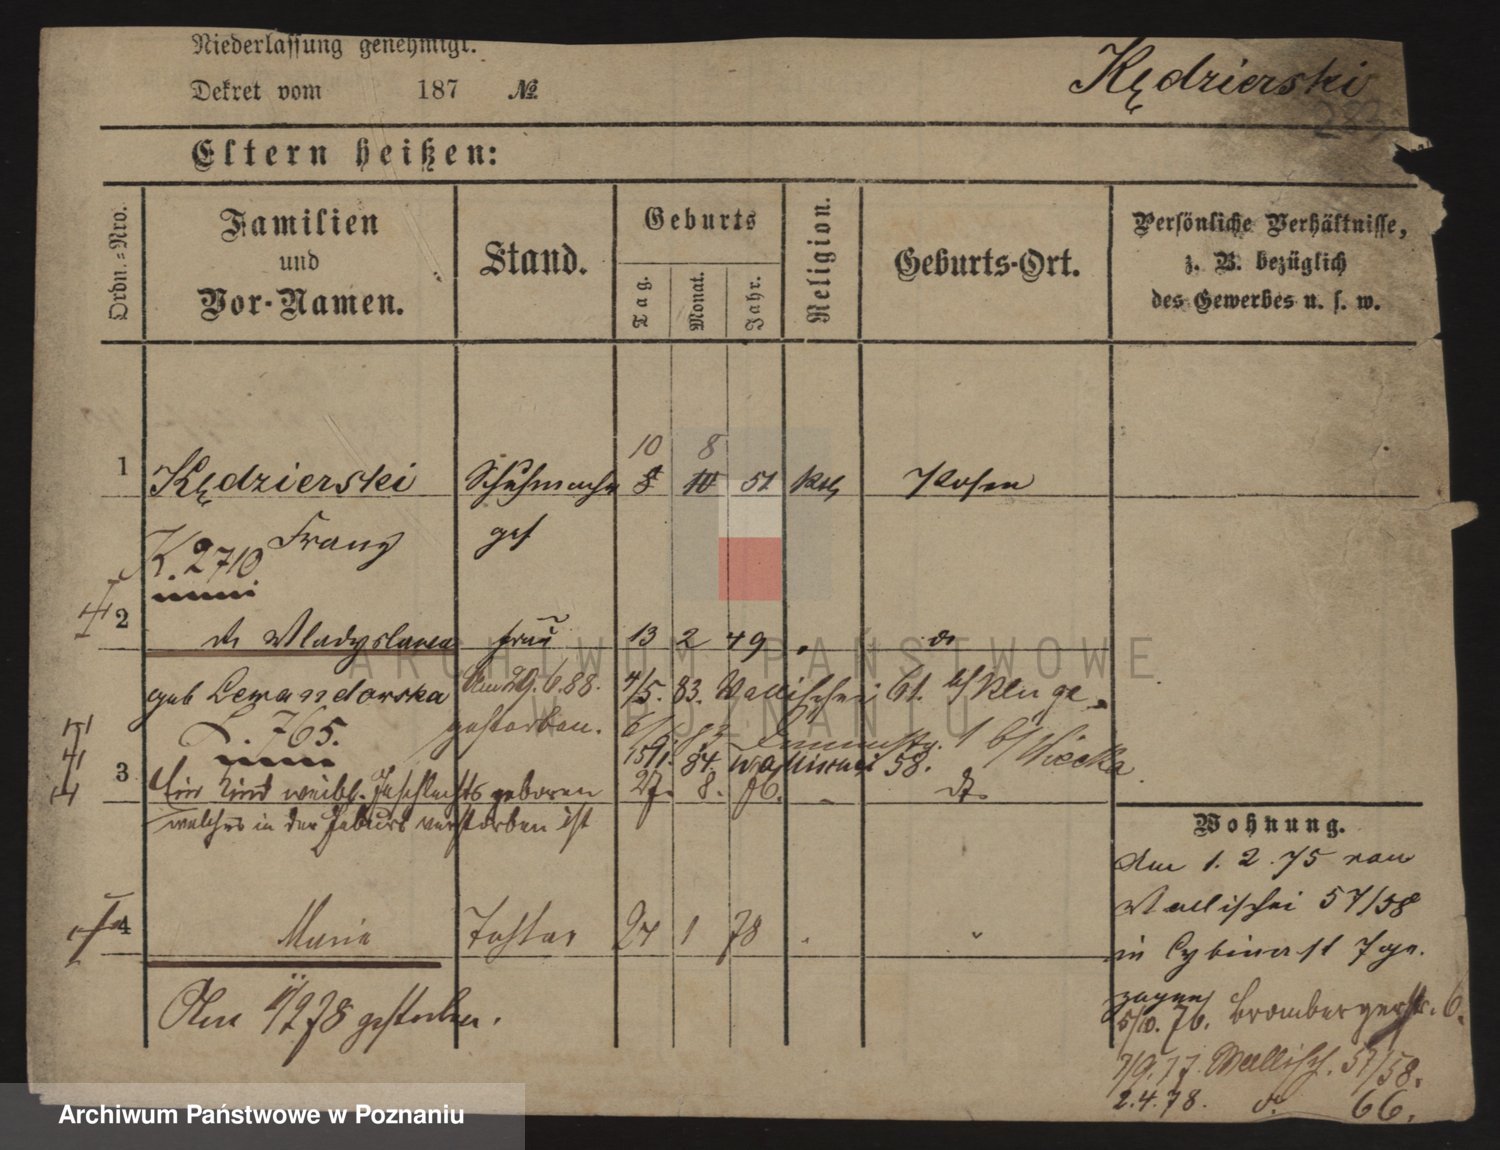 Niederlassung genehmigt.
Dekret vom 187 №
Kędzierski
Eltern heißen:
Ordn.=Nro.
Familien und Vor-Namen.
Stand.
Geburts
Tag.
Monat.
Jahr.
Religion.
Geburts-Ort.
Persönliche Verhältnisse,
z. B. bezüglich
des Gewerbes u. s. w.
10 8
1 Kędzierski Schuhmacher 8 10 51 kath Posen
Franz ges
K. 2710
2 do Wladyslawa frau 13 2 49 " do
geb Lewandowska Am 29.6.88. 4/5. 83. Wallischei 61. b/ Kluge.
gestorben.
L. 765. 1 b/ Wiecka
15/1. 84. Wallischei 58.
3 Ein Kind weibl. Geschlechts geboren 27. 8. 76. do
welches in der Geburt verstorben ist
4 Marie Tochter 24 1 78
Am 4/2 78 gestorben.
Wohnung.
Am 1. 2. 75 von
Wallischei 57/58
in Cybinast 7 ge.
zogen
5/10. 76. Brombergerstr. 6.
7/9. 77. Wallisch. 57/58.
2.4.78. do. 66.
ARCHIWUM PAŃSTWOWE
W POZNANIU
Archiwum Państwowe w Poznaniu